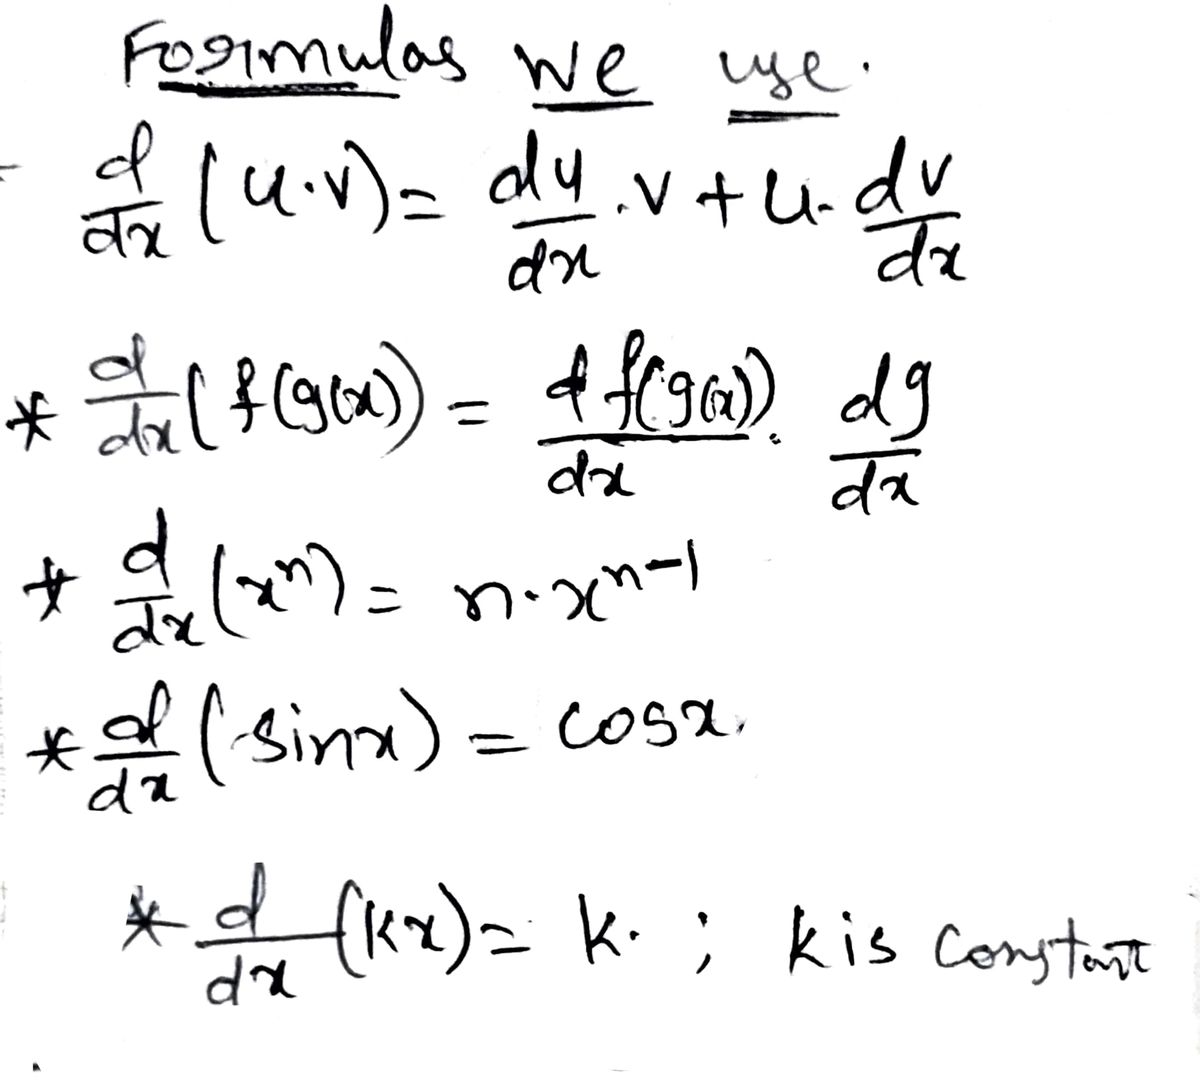 Formulas we use.
d/dx (u.v) = du/dx .v + u. dv/dx
* d/dx (f(g(x)) = d f(g(x))/dx . dg/dx
* d/dx (xⁿ) = n.xⁿ⁻¹
* d/dx (sinx) = cosx.
* d/dx (kx) = k. ; k is constant